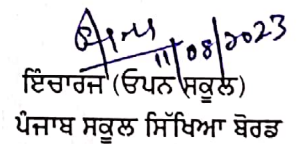 11/08/2023
ਇੰਚਾਰਜ (ਓਪਨ ਸਕੂਲ)
ਪੰਜਾਬ ਸਕੂਲ ਸਿੱਖਿਆ ਬੋਰਡ